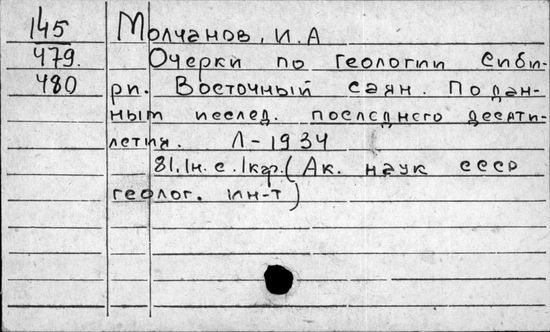 145 Молчанов, И.А
479. Очерки по геологии Сиби-
480 ри. Восточный саян. По дан-
ным исслед. последнего десяти-
летия. Л-1934
81, 1н. с. 1кар. (Ак. наук СССР
геолог. ин-т)